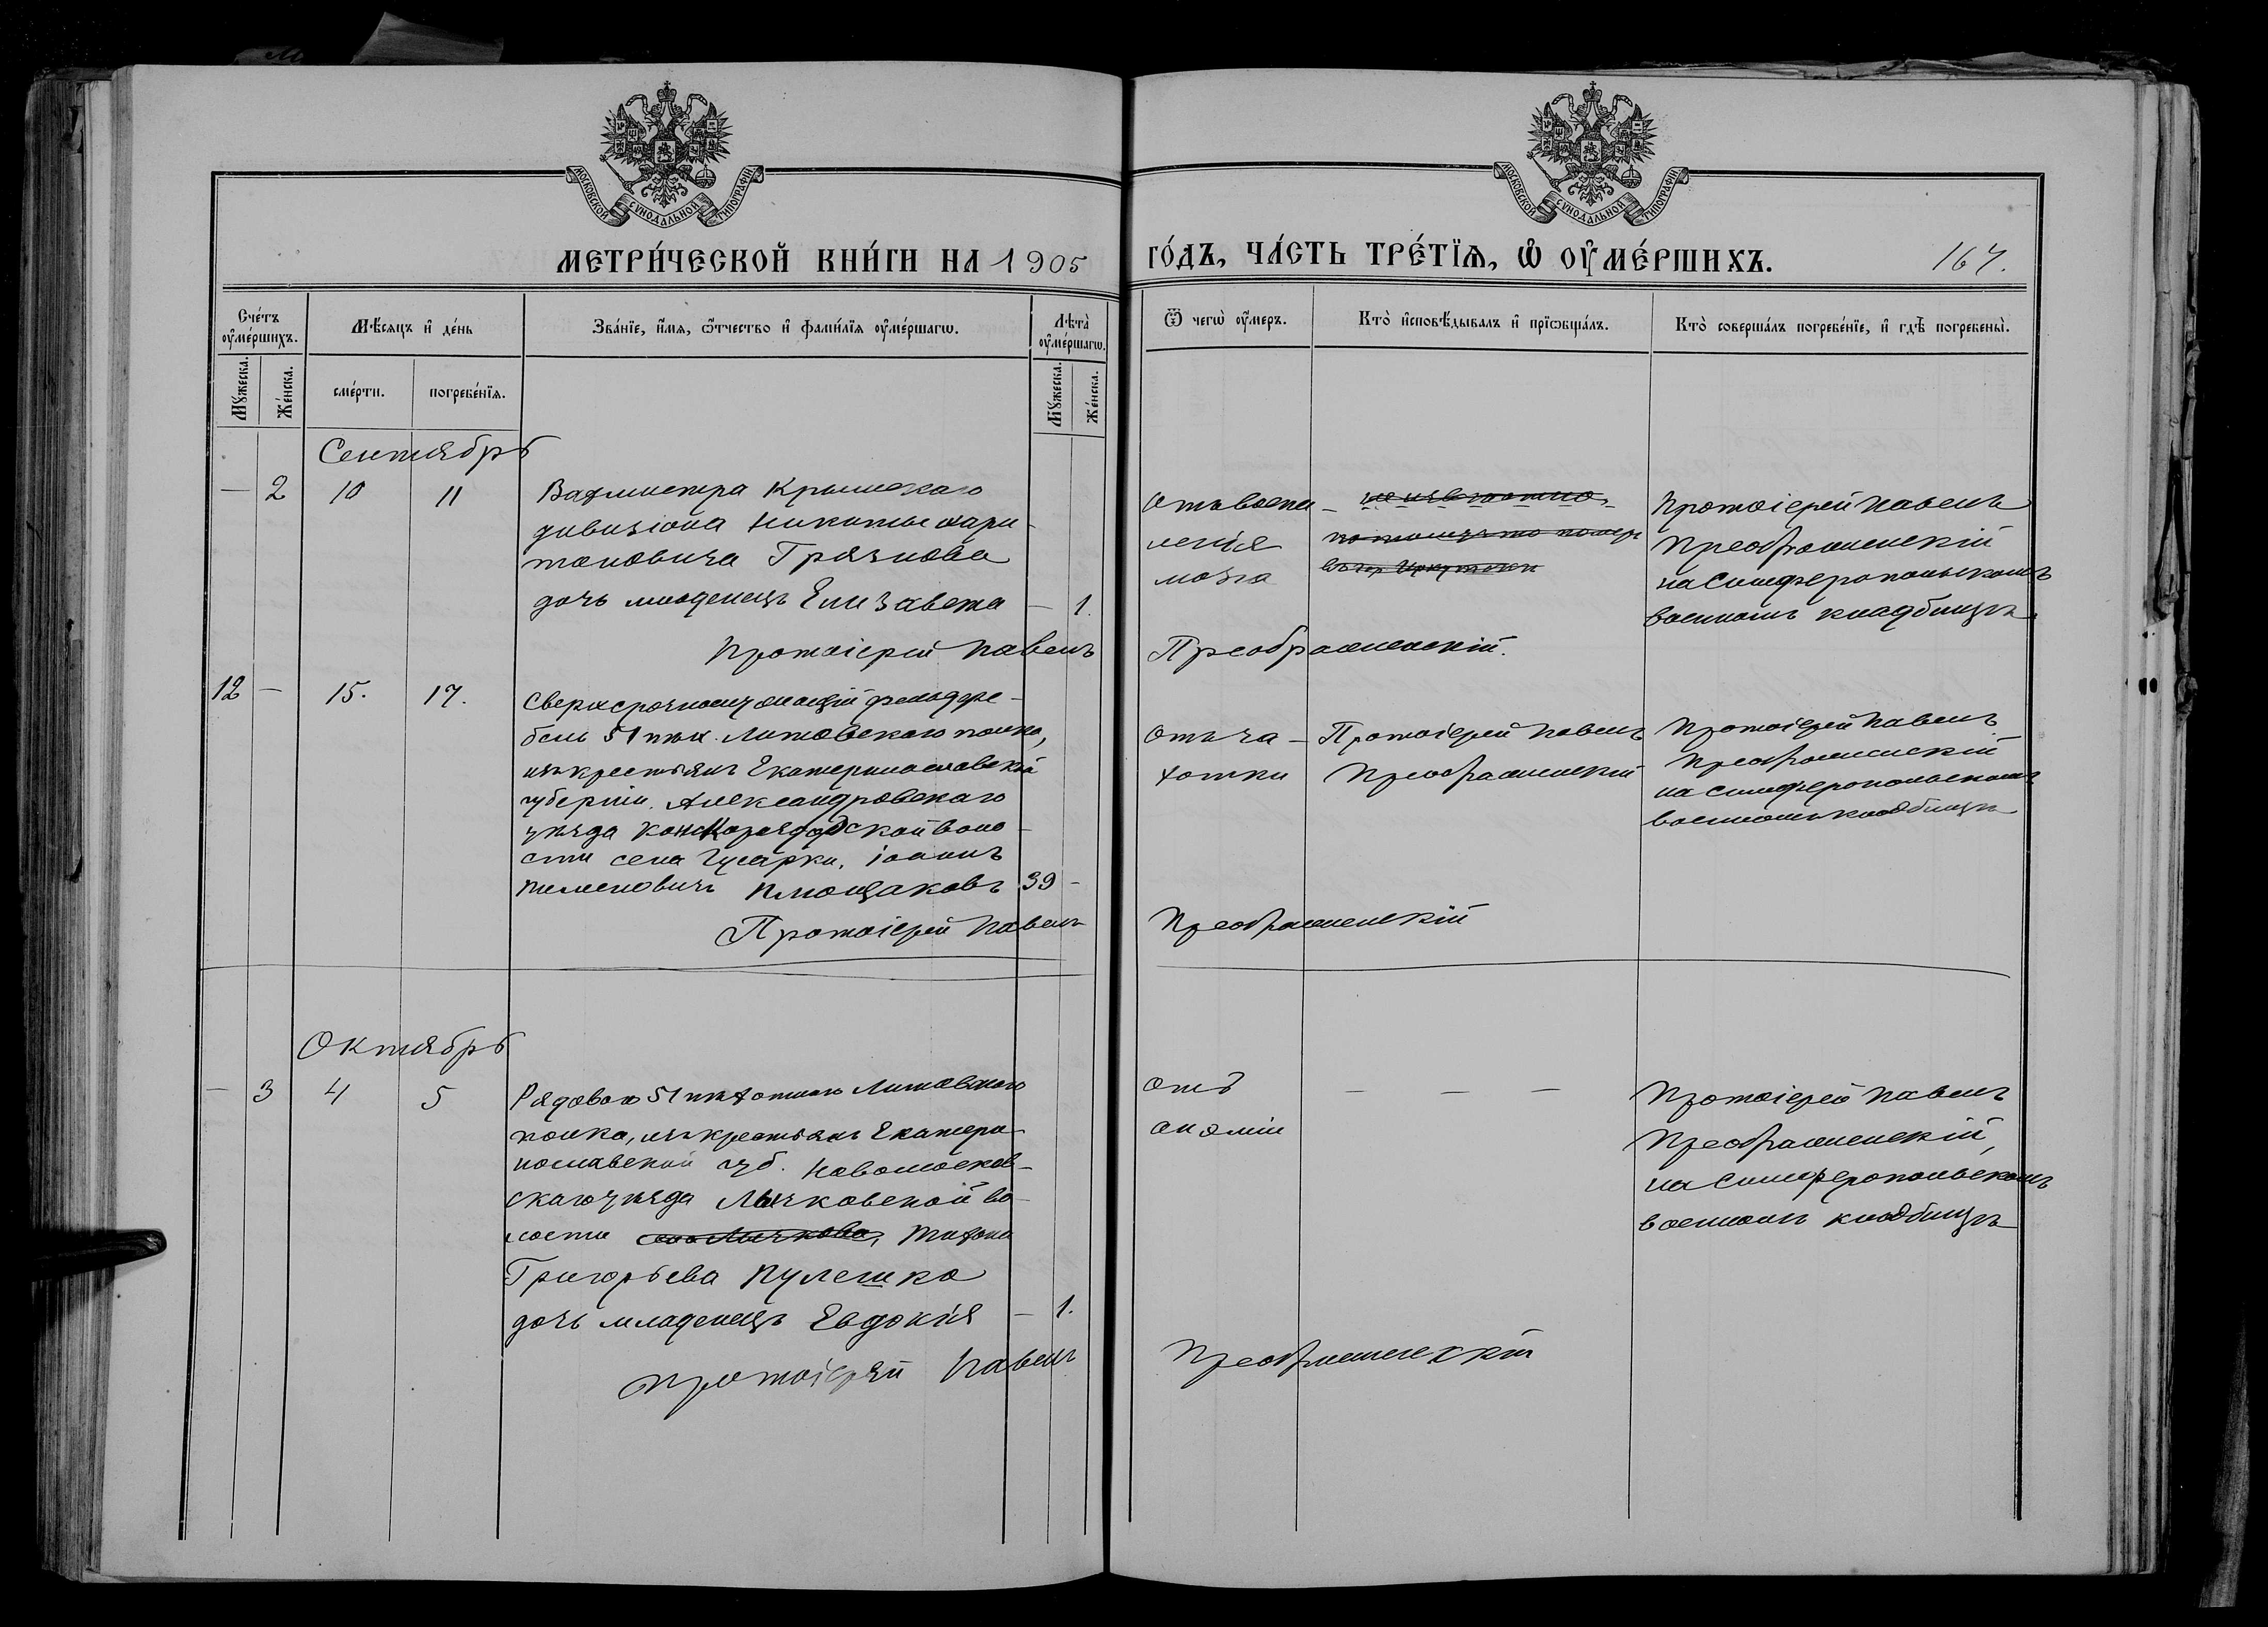 МОСКОВСКОЙ СѴНОДАЛЬНОЙ ТИПОГРАФІИ
МОСКОВСКОЙ СѴНОДАЛЬНОЙ ТИПОГРАФІИ
МЕТРИ́ЧЕСКОЙ КНИ́ГИ НА 1905 ГО́ДЪ, ЧА́СТЬ ТРЕ́ТЇѦ, Ѡ҆ ОУ҆МЕ́РШИХЪ. 167.
Сче́тъ оу҆ме́ршихъ.
Мѣ́сяцъ и҆ де́нь
Зва́нїе, и҆́мя, ѻ҆́тчество и҆ фами́лїя оу҆ме́ршагѡ.
Лѣта̀ оу҆ме́ршагѡ.
Ѿ чегѡ̀ оу҆́меръ.
Кто̀ и҆сповѣ́дывалъ и҆ прїѡбща́лъ.
Кто̀ соверша́лъ погребе́нїе, и҆ гдѣ̀ погребены̀.
Мꙋ́жеска.
Же́нска.
сме́рти.
погребе́нїя.
Мꙋ́жеска.
Же́нска.
Сентябрь
— 2 10 11
Вахмистра Крымскаго
дивизіона Никиты Хари-
тоновича Грязнова
дочь младенецъ Елизавета — 1.
Отъ воспа-
ленія
мозга
неизвѣстно,
потому что померъ
въ гор. Иркутскѣ
Протоіерей Павелъ
Преображенскій
на Симферопольскомъ
военномъ кладбищѣ.
Протоіерей Павелъ Преображенскій.
12 — 15. 17.
Сверхсрочнослужащій фельдфе-
бель 51 пѣх. Литовскаго полка,
изъ крестьянъ Екатеринославской
губерніи Александровскаго
уѣзда Конскораздорской воло-
сти села Гусарки, Іоаннъ
Пименовичъ Площаковъ 39 —
Отъ ча-
хотки
Протоіерей Павелъ
Преображенскій
Протоіерей Павелъ
Преображенскій
на Симферопольскомъ
военномъ кладбищѣ
Протоіерей Павелъ Преображенскій
Октябрь
— 3 4 5
Рядового 51 пѣхотнаго Литовскаго
полка, изъ крестьянъ Екатери-
нославской губ. Новомосков-
скаго уѣзда Лычковской во-
лости села Лычкова, Тихона
Григорьева Кулешко
дочь младенецъ Евдокія — 1.
Отъ
анэміи
— — —
Протоіерей Павелъ
Преображенскій,
на Симферопольскомъ
военномъ кладбищѣ
Протоіерей Павелъ Преображенскій